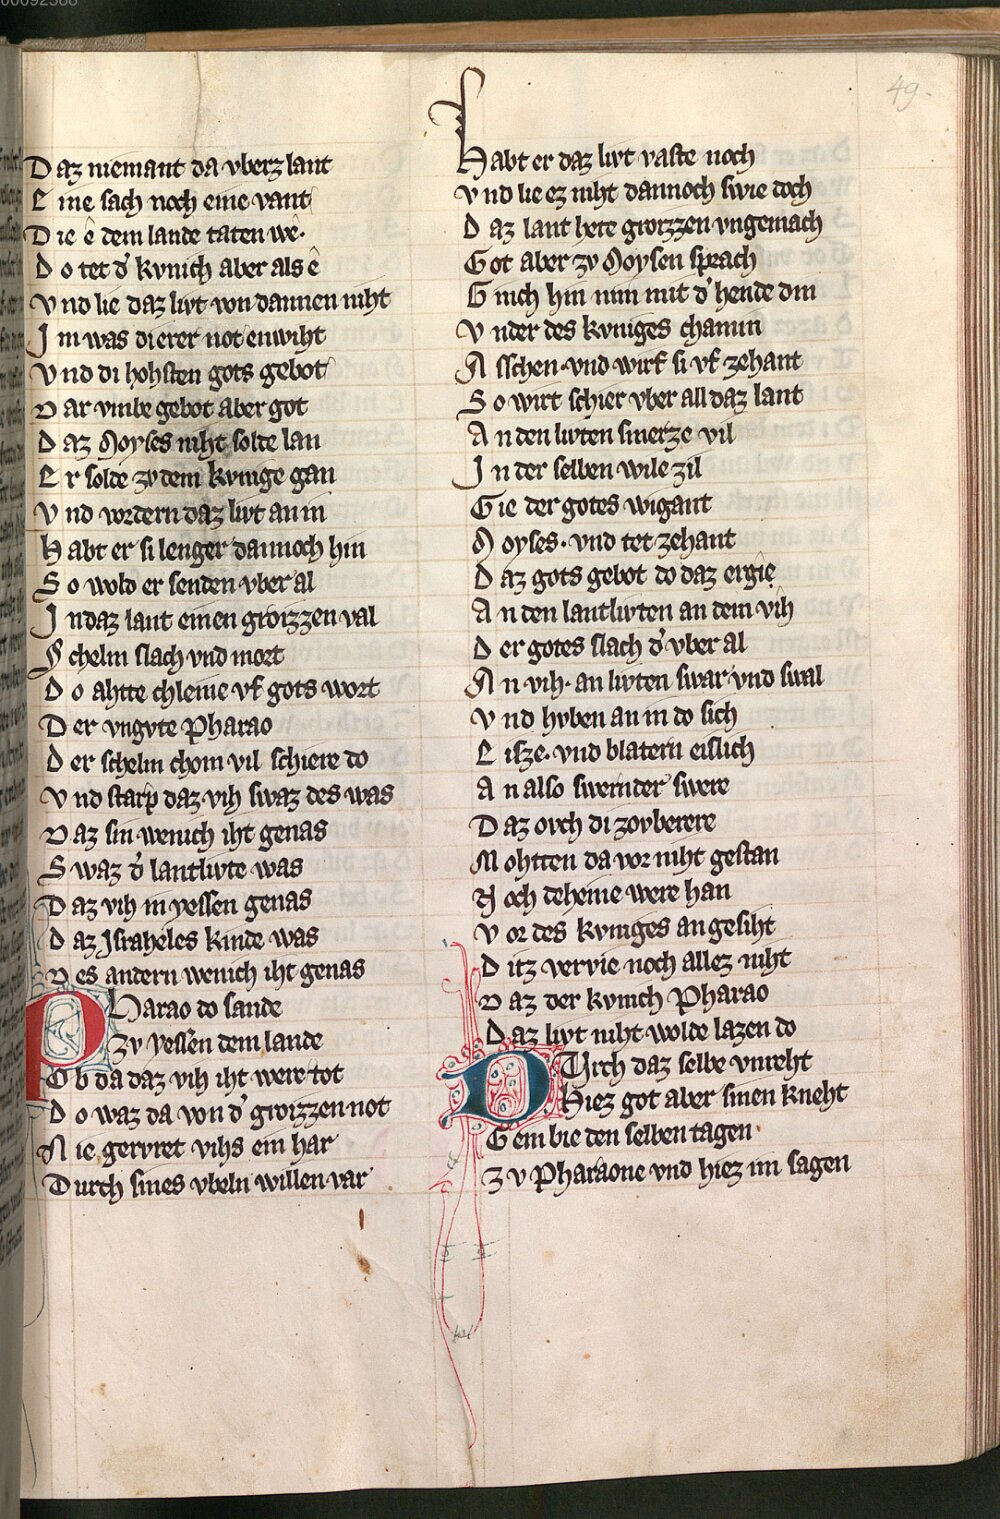 00092588
49.
Daz niemant da vberz lant
Eine sach noch eine vant
Die ê dem lande taten wê.
Do tet d' kvnich aber als ê
Vnd lie daz livt von dannen niht
Im was dierer not enwiht
Vnd di hohsten gots gebot
Dar vmbe gebot aber got
Daz Moyses niht solde lan
Er solde zv dem kvnige gan
Vnd vordern daz livt an in
Habt er si lenger dannoch hin
So wold er senden vber al
In daz lant einen groizzen val
Schelm slach vnd mort
Do ahtte chleine vf gots wort
Der vngvte Pharao
Der schelm chom vil schiere do
Vnd starp daz vih swaz des was
Daz sin wenich iht genas
Swaz d' lantlivte was
Daz vih in yessen genas
Daz Israheles kinde was
Des andern wenich iht genas
PHarao do sande
Zv yessen dem lande
Ob da daz vih iht were tot
Do waz da von d' groizzen not
Nie gervret vihs ein har
Durch sines vbeln willen var
Habt er daz livt vaste noch
Vnd lie ez niht dannoch swie doch
Daz lant hete groizzen vngemach
Got aber zv Moysen sprach
Ginch hin nim mit d' hende din
Vnder des kvniges chamin
Asschen. vnd wirf si vf zehant
So wirt schier vber all daz lant
An den livten smerze vil
In der selben wile zil
Gie der gotes wigant
Moyses. vnd tet zehant
Daz gots gebot do daz ergie
An den lantlivten an dem vih
Der gotes slach d' vber al
An vih. an livten swar vnd swal
Vnd hvben an in do sich
Eisze. vnd blatern eislich
An also swernder swere
Daz ovch di zovberere
Mohtten da vor niht gestan
Noch deheine were han
Vor des kvniges angesiht
Ditz vervie noch allez niht
Daz der kvnich Pharao
Daz livt niht wolde lazen do
DVrch daz selbe vnreht
Hiez got aber sinen kneht
Gein bie den selben tagen
Zv Pharaone vnd hiez im sagen